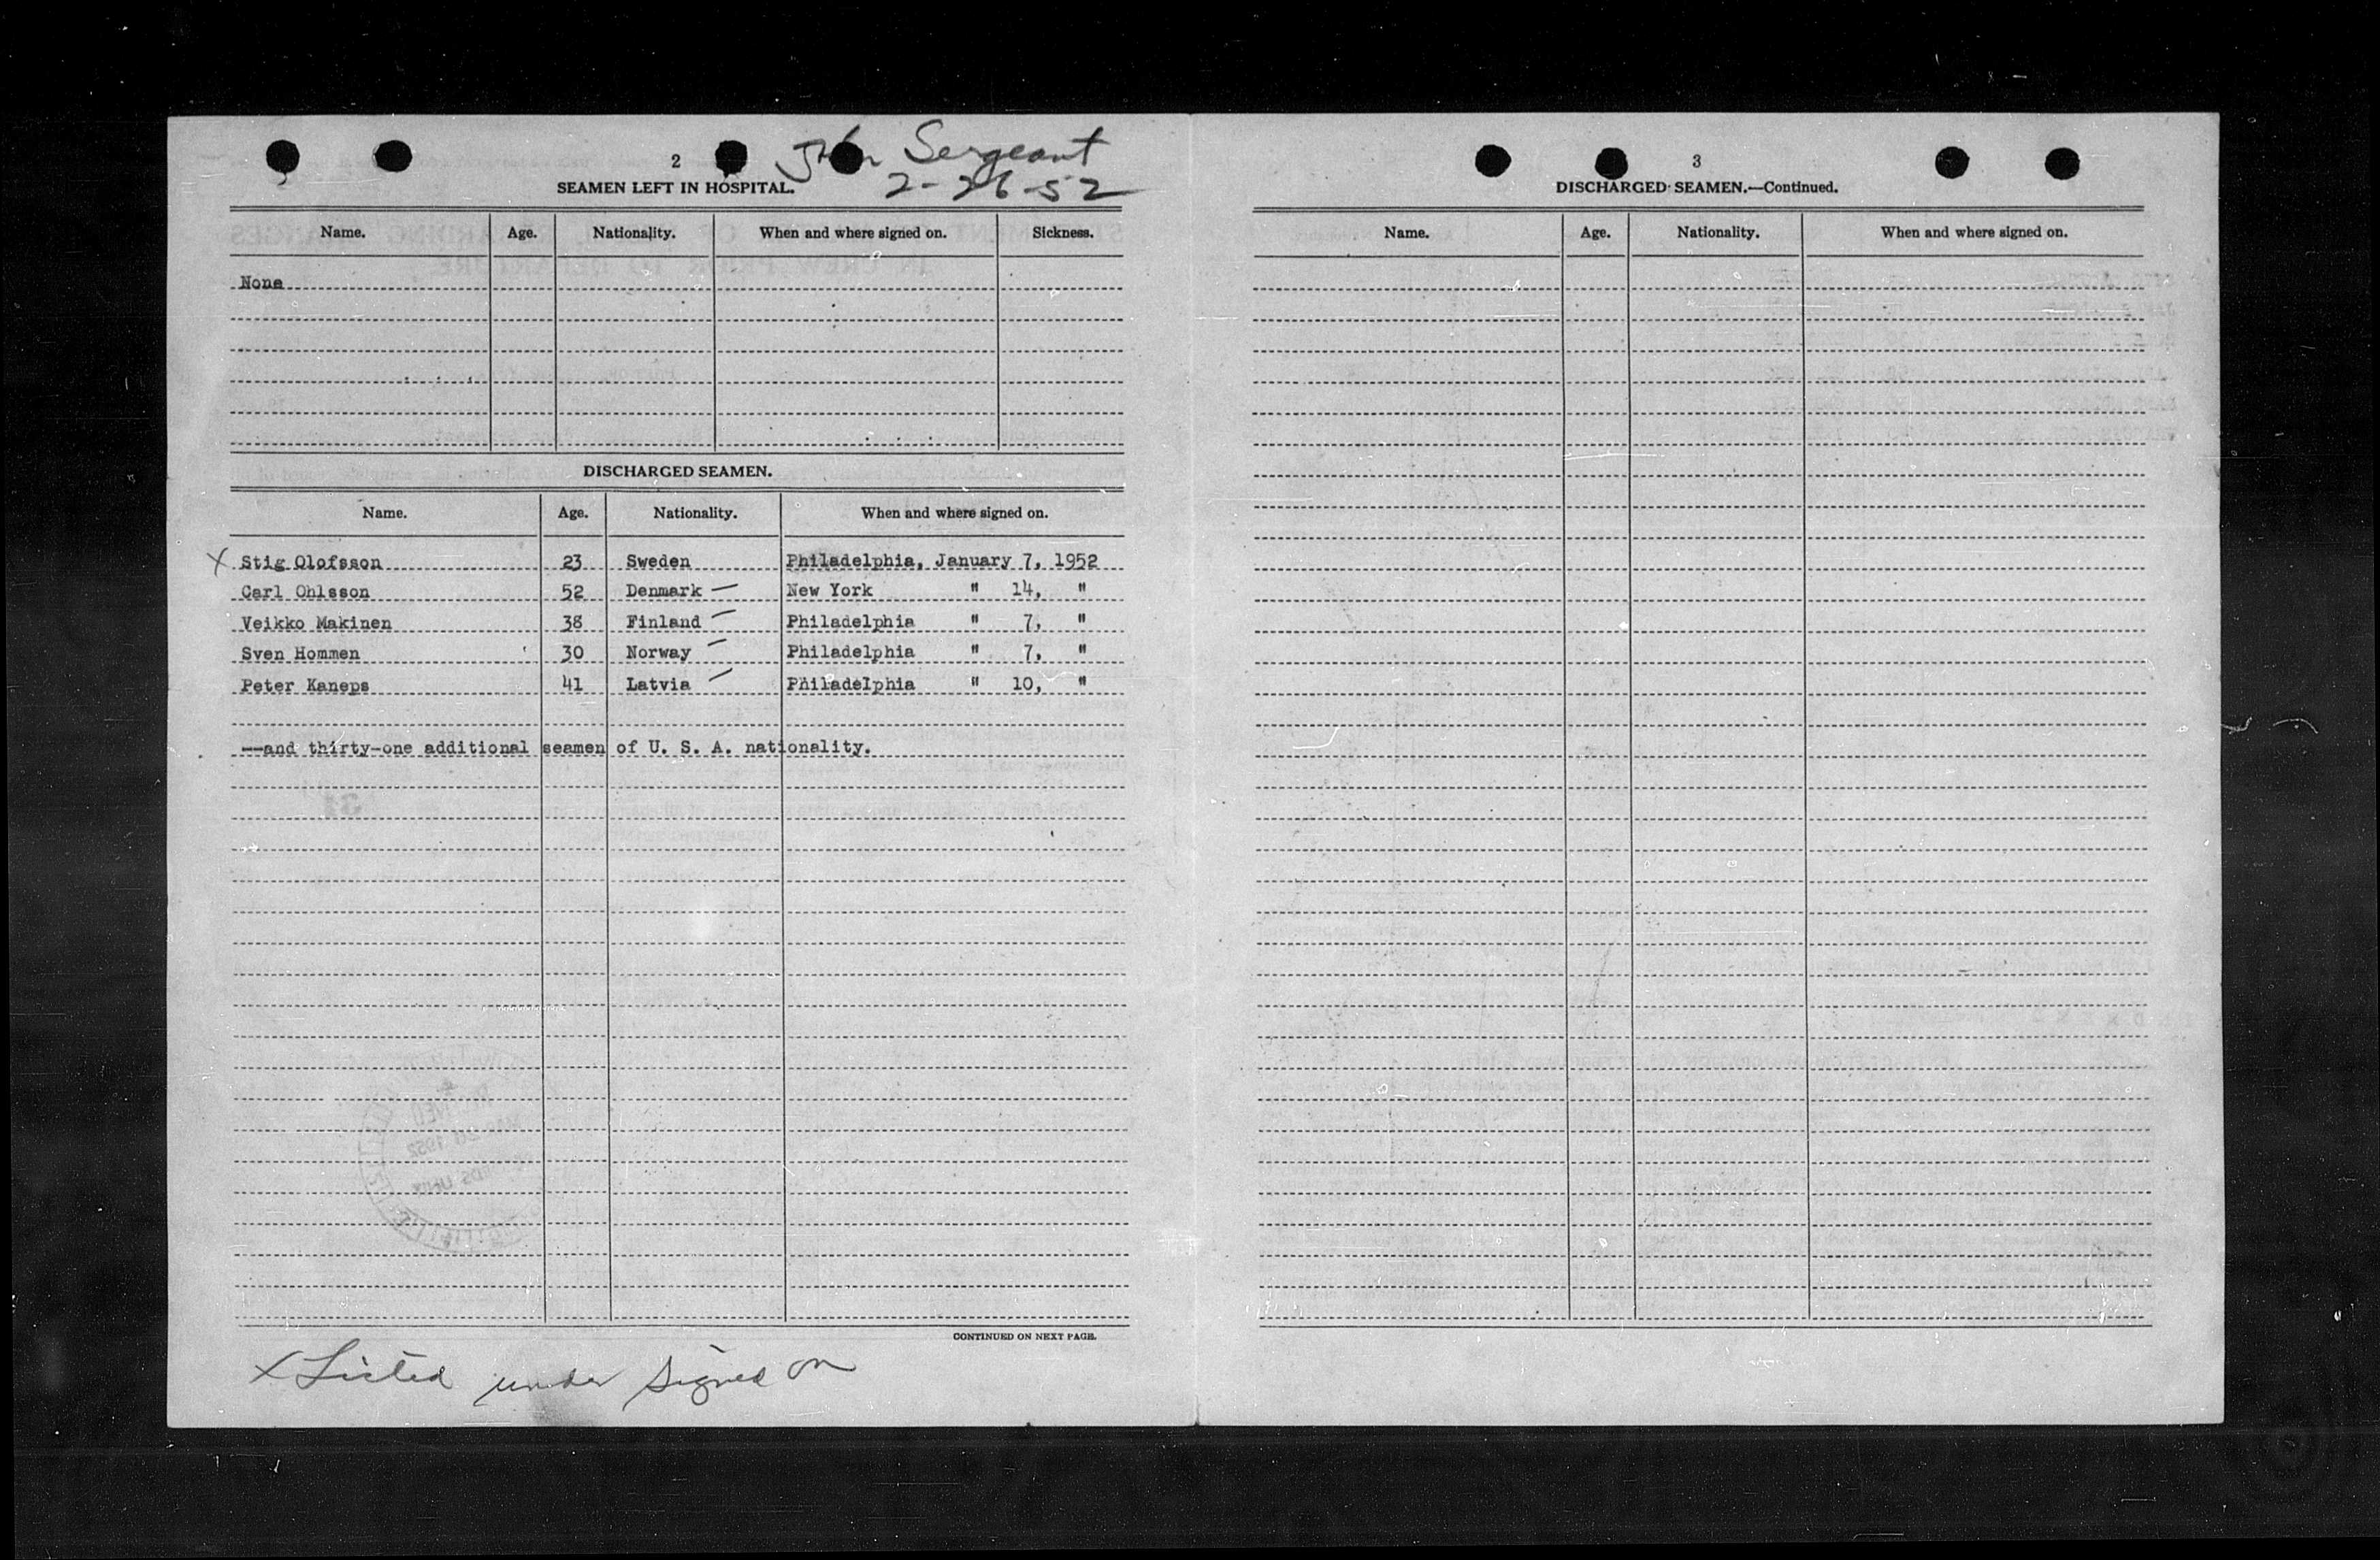 2
John Sergeant
2-26-52
SEAMEN LEFT IN HOSPITAL.
Name. Age. Nationality. When and where signed on. Sickness.
None
DISCHARGED SEAMEN.
Name. Age. Nationality. When and where signed on.
X Stig Olofsson 23 Sweden Philadelphia, January 7, 1952
Carl Ohlsson 52 Denmark — New York " 14, "
Veikko Makinen 38 Finland — Philadelphia " 7, "
Sven Hommen 30 Norway — Philadelphia " 7, "
Peter Kaneps 41 Latvia — Philadelphia " 10, "
--and thirty-one additional seamen of U. S. A. nationality.
CONTINUED ON NEXT PAGE.
X Listed under signed on
3
DISCHARGED SEAMEN.—Continued.
Name. Age. Nationality. When and where signed on.